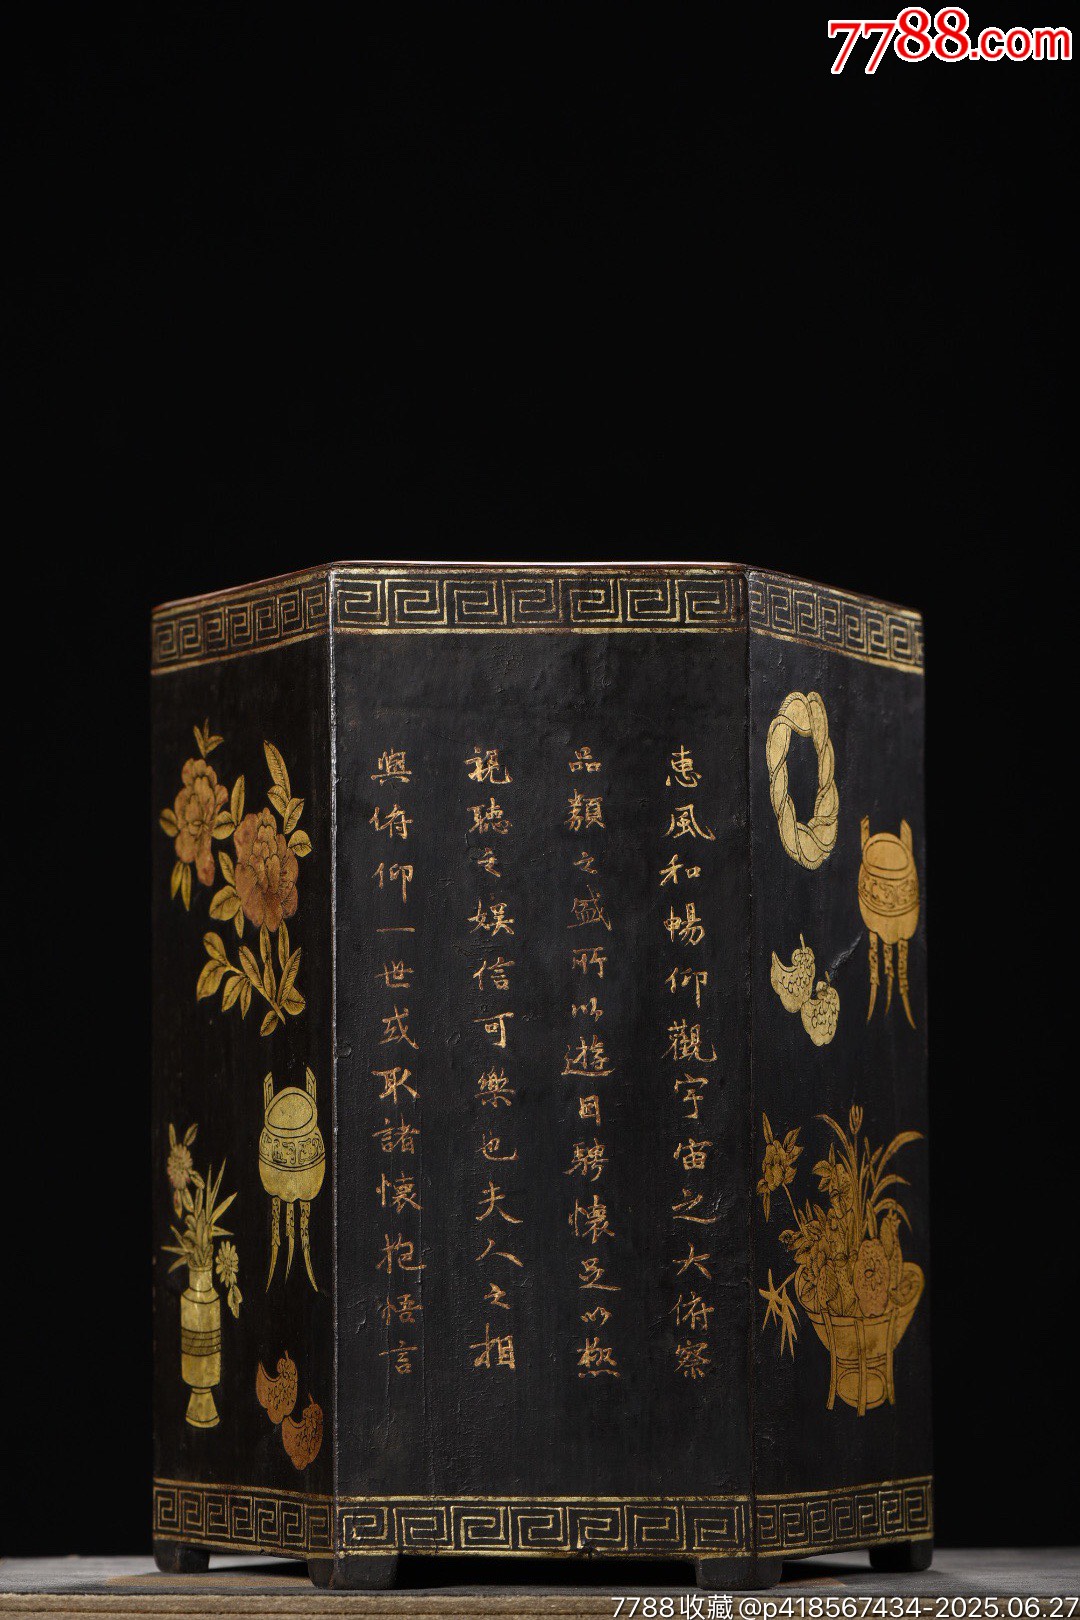 7788.com
惠風和暢仰觀宇宙之大俯察
品類之盛所以遊目騁懷足以極
視聽之娛信可樂也夫人之相
與俯仰一世或取諸懷抱悟言
7788收藏@p418567434-2025.06.27